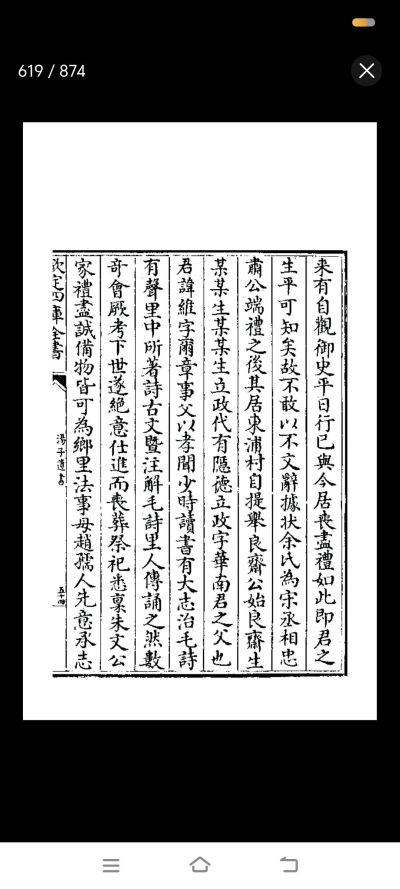 619 / 874
来有自觀御史平日行已與今居喪盡禮如此即君之
生平可知矣故不敢以不文辭據状余氏為宋丞相忠
肅公端禮之後其居東浦村自提舉良齋公始良齋生
某某生某某生立政代有隱德立政字華南君之父也
君諱維字爾章事父以孝聞少時讀書有大志治毛詩
有聲里中所著詩古文暨注解毛詩里人傳誦之然數
奇會厥考下世遂絕意仕進而喪葬祭祀悉禀朱文公
家禮盡誠備物皆可為鄉里法事母趙孺人先意承志
欽定四庫全書
湯子遺書
五十四